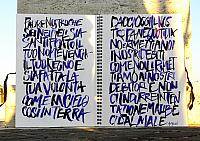 PADRE NOSTRO CHE
SEI NEI CIELI SIA
SANTIFICATO IL
TUO NOME VENGA
IL TUO REGNO E
SIA FATTA LA
TUA VOLONTA
COME IN CIELO
COSI IN TERRA
DACCI OGGI IL NOS
TRO PANE QUOTIDIA
NO E RIMETTI A NOI
I NOSTRI DEBITI
COME NOI LI RIMET
TIAMO AI NOSTRI
DEBITORI E NON
CI INDURRE IN TEN
TAZIONE MA LIBERA
CI DAL MALE